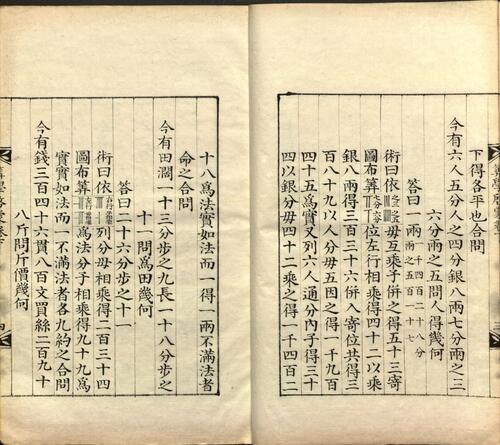 下得各平也合問
今有六人五分人之四分銀八兩七分兩之三
六分兩之五問人得幾何
答曰一兩一千四百二十八分兩之五百一十七
術曰依分母互乘子併之得五十三寄
圖布筭位左行相乘得四十二以乘
銀八兩得三百三十六併入寄位共得三
百八十九以人分母五因之得一千九百
四十五爲實又列六人通分內子得三十
四以銀分母四十二乘之得一千四百二
十八爲法實如法而一得一兩不滿法者
命之合問
今有田濶一十三分步之九長一十八分步之
十一問爲田幾何
答曰二十六分步之十一
術曰依列分母相乘得二百三十四
圖布筭爲法分子相乘得九十九爲
實實如法而一不滿法者各九約之合問
今有錢三百四十六貫八百文買絲二百九十
八斤問斤價幾何